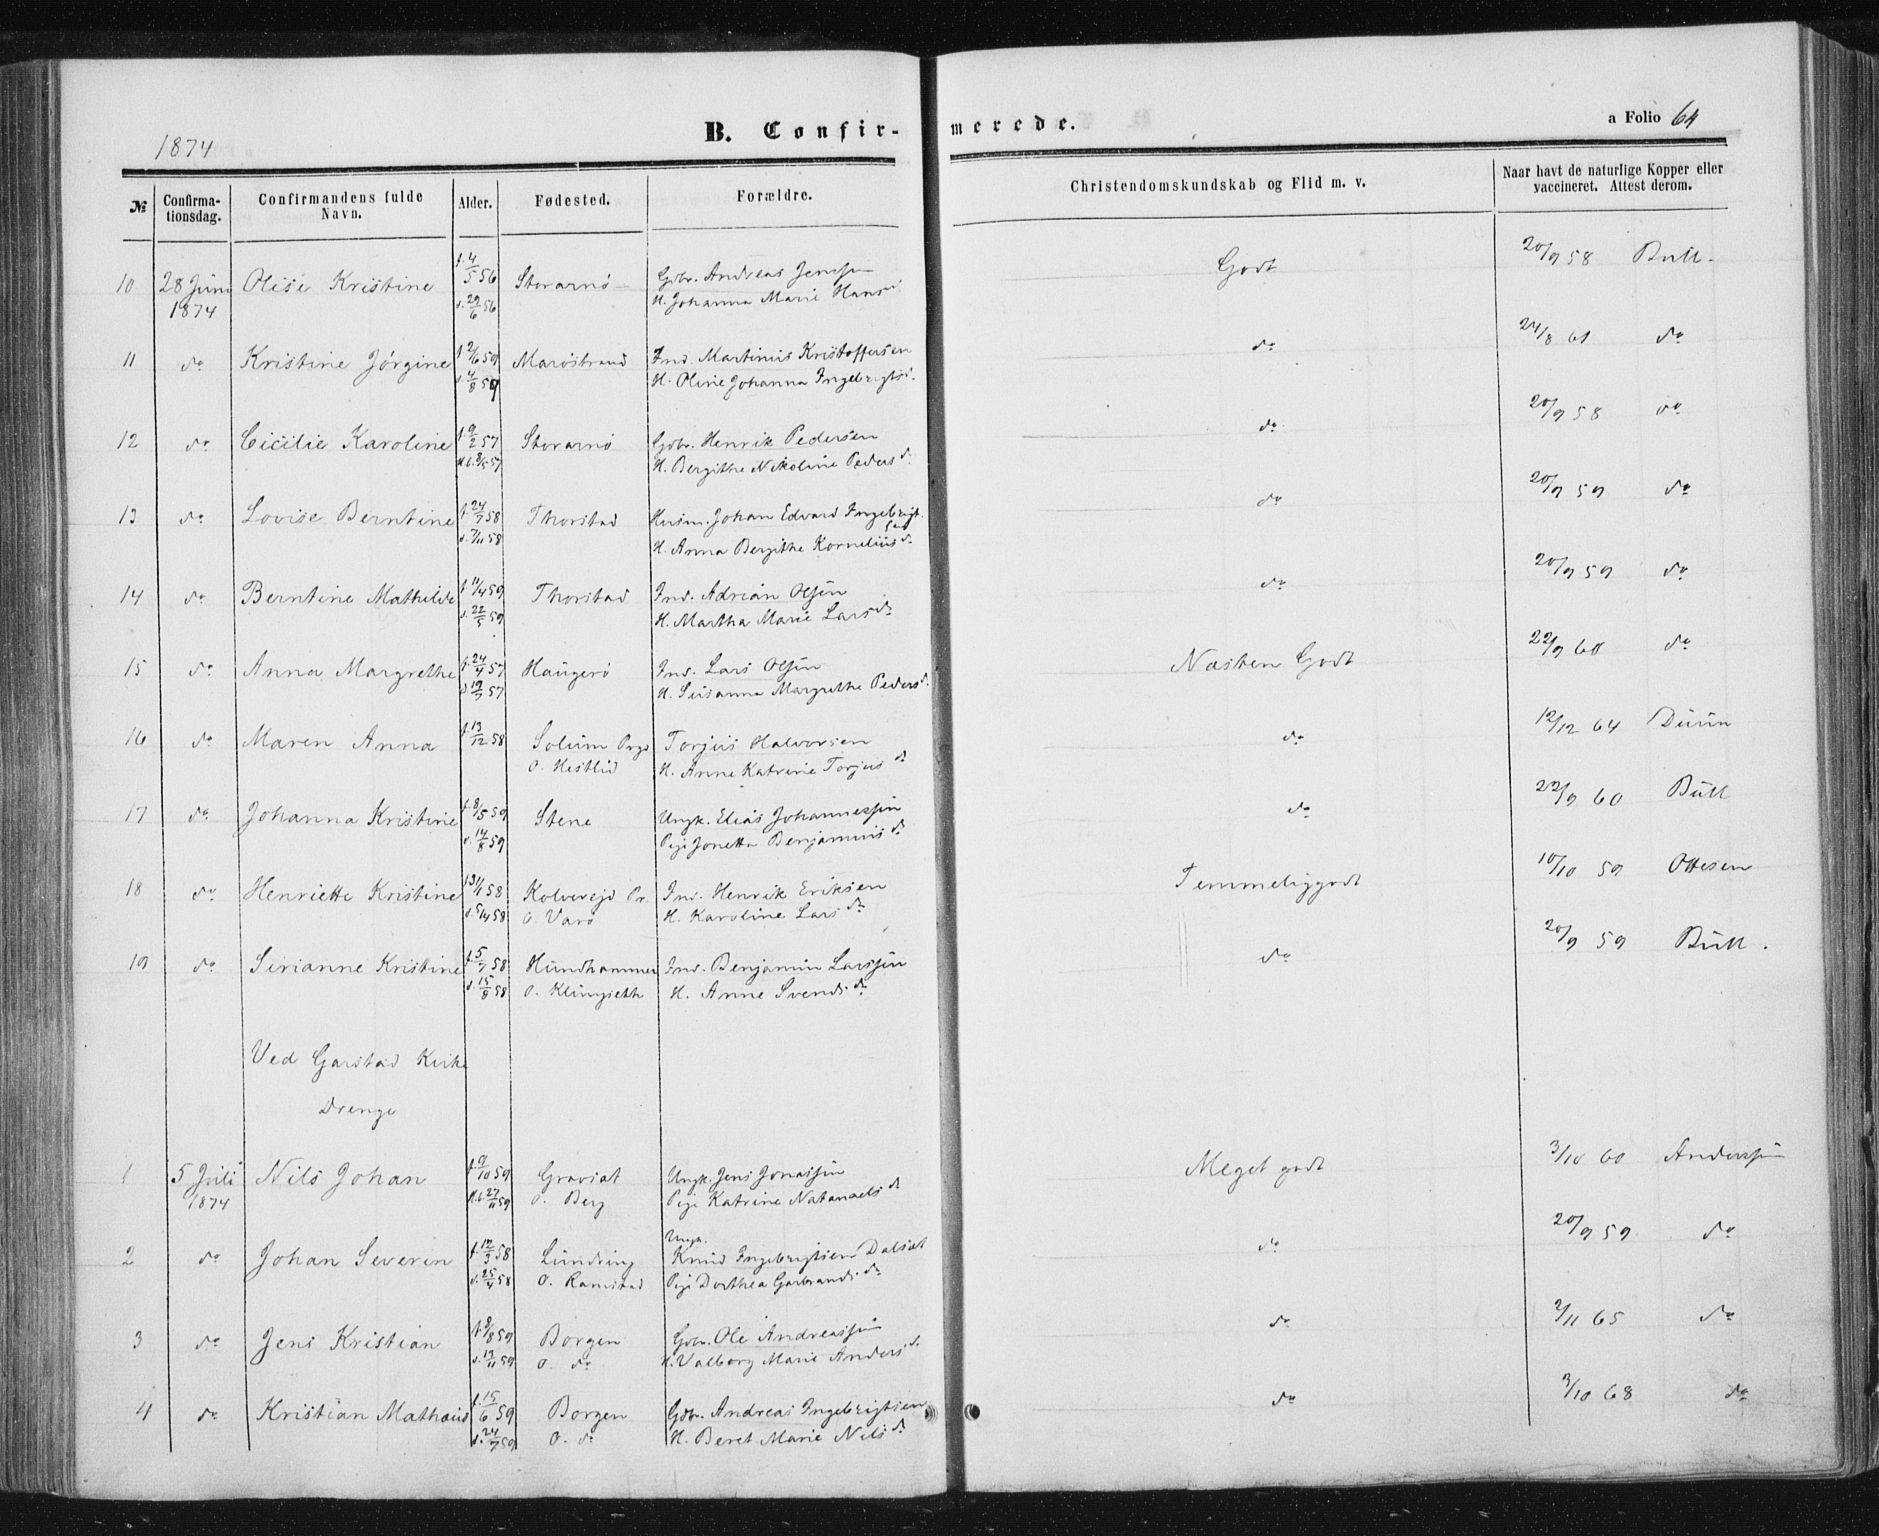 1874
B. Confirmerede.
a Folio 64
№
Confirmationsdag.
Confirmandens fulde Navn.
Alder.
Fødested.
Forældre.
Christendomskundskab og Flid m. v.
Naar havt de naturlige Kopper eller vaccineret. Attest derom.
10 28 Juni Olise Kristine f. 4/5 56 Storarnø Gdbr. Andreas Jensen Godt 20/9 58 Bull.
1874 d. 29/6 56 H. Johanna Marie Hansd.
11 do Kristine Jørgine f 2/6 59 Marøstrand Ind. Martinus Kristoffersen do 24/8 61 do
d. 4/8 59 H. Oline Johanna Ingebrigtsd.
12 do Cicilie Karoline f. 9/2 57 Storarnø Gdbr. Henrik Pedersen do 20/9 58 do
H.d. 8/5 57 H. Bergithe Nikoline Pedersd.
13 do Lovise Berntine f. 24/7 58 Thorstad Husm. Johan Edvard Ingebrigt. do 20/9 59 do
sen
d. 7/11 58 H. Anna Bergithe Korneliusd.
14 do Berntine Mathilde f 11/4 59 Thorstad Ind. Adrian Olsen do 20/9 59 do
d. 22/5 59 H. Martha Marie Larsd.
15 do Anna Margrethe f. 24/4 57 Haugerø Ind. Lars Olsen Næsten Godt 22/9 60 do
d 19/7 57 H. Susanna Margrethe Pedersd.
16 do Maren Anna f 13/12 58 Solum Prgd Torjus Halvorsen do 12/12 64 Duun
O. Hestlid H. Anne Katrine Torjusd.
17 do Johanna Kristine f. 8/5 59 Stene Ungk. Elias Johannessen do 22/9 60 Bull
d. 14/8 59 Pige Jonetta Benjaminsd.
18 do Henriette Kristine f 31/1 58 Kolvereid Pr. Ind. Henrik Eriksen Temmeliggodt 10/10 59 Ottesen
d. 5/4 58 O. Varø H. Karoline Larsd.
19 do Sirianne Kristine f. 5/7 58 Hundhammer Ind. Benjamin Larssen do 20/9 59 Bull.
d. 15/8 58 O. H. Anne Svendsd.
Ved Garstad Kirke
Drenge
1 5 Juli Nils Johan f. 9/10 59 Graviat Ungk. Jens Jonassen Meget godt 3/10 60 Anderssen
1874 H.d. 27/11 59 O. Berg Pige Katrine Natanaelsd.
Ungk.
2 do Johan Severin f. 12/3 58 Lundring Knud Ingebrigtsen Dalsæt do 20/9 59 do
d. 25/4 58 O. Ramstad Pige Dorthea Garbrandsd.
3 do Jens Kristian f 9/8 59 Borgen Gdbr. Ole Andreassen do 2/11 65 do
d. 19/11 59 O. do H. Valborg Marie Andersd.
4 do Kristian Mathæus f. 15/6 59 Borgen Gdbr. Andreas Ingebrigtsen do 3/10 68 do
d. 24/7 59 O. do H. Beret Marie Nilsd.